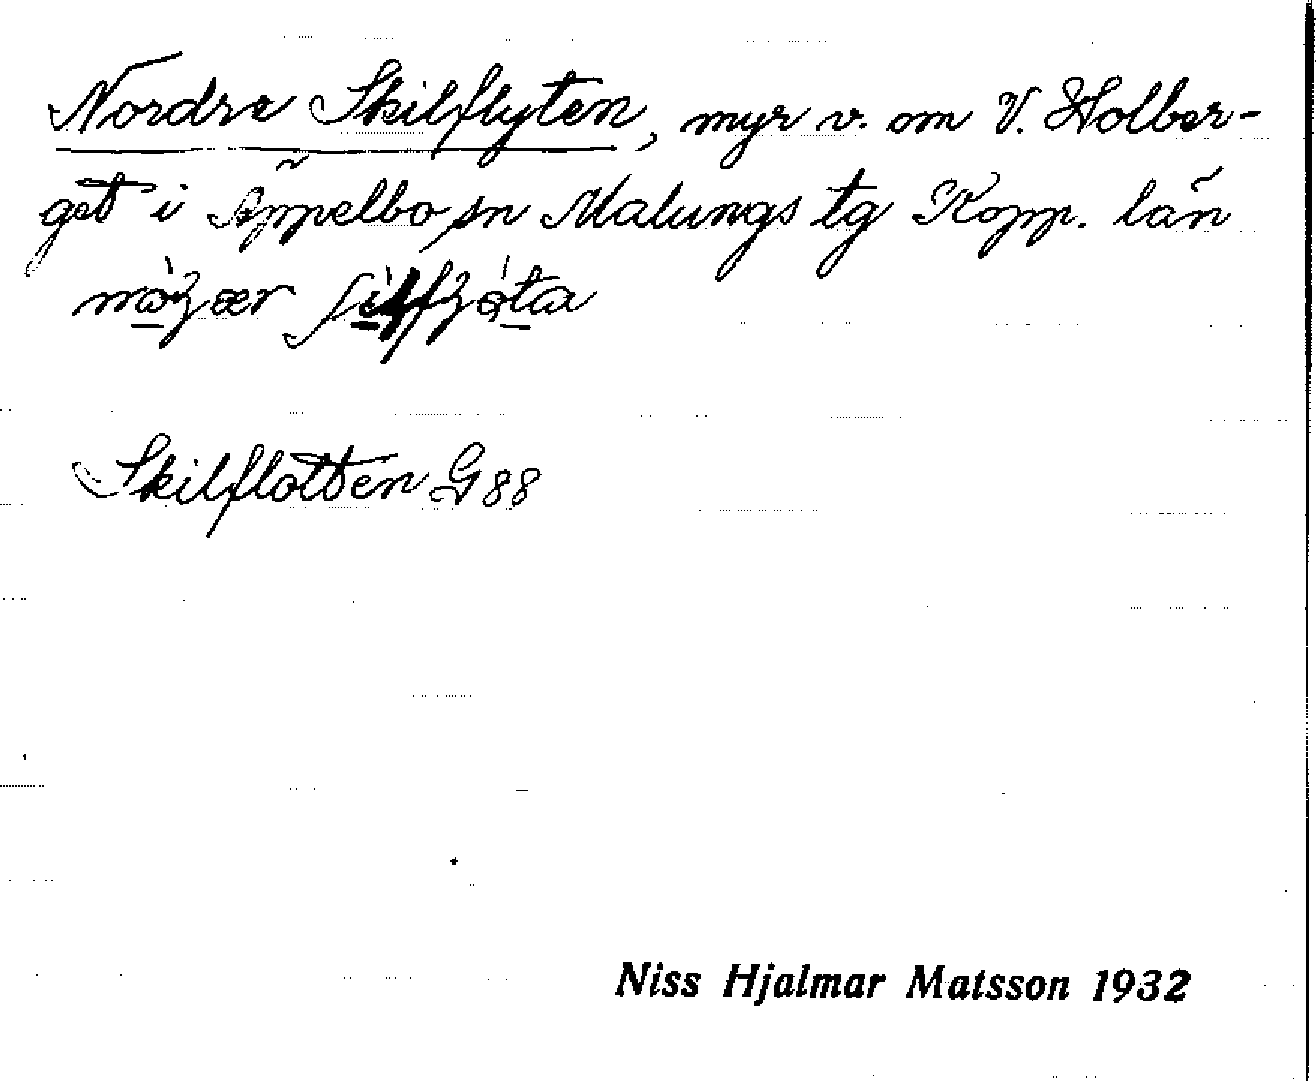 Nordre Skilflyten, myr v. om V. Holber-
get i Äppelbo sn Malungs tg Kopp. län
Skilflotten G 88
Niss Hjalmar Matsson 1932